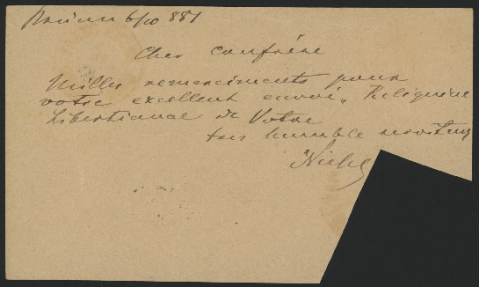 Brünn 6/10 881
Cher confrère
Milles remerciments pour
votre excellent envoi „ Reliquiae
Libertianae de Votre
très humble serviteur
Niessl